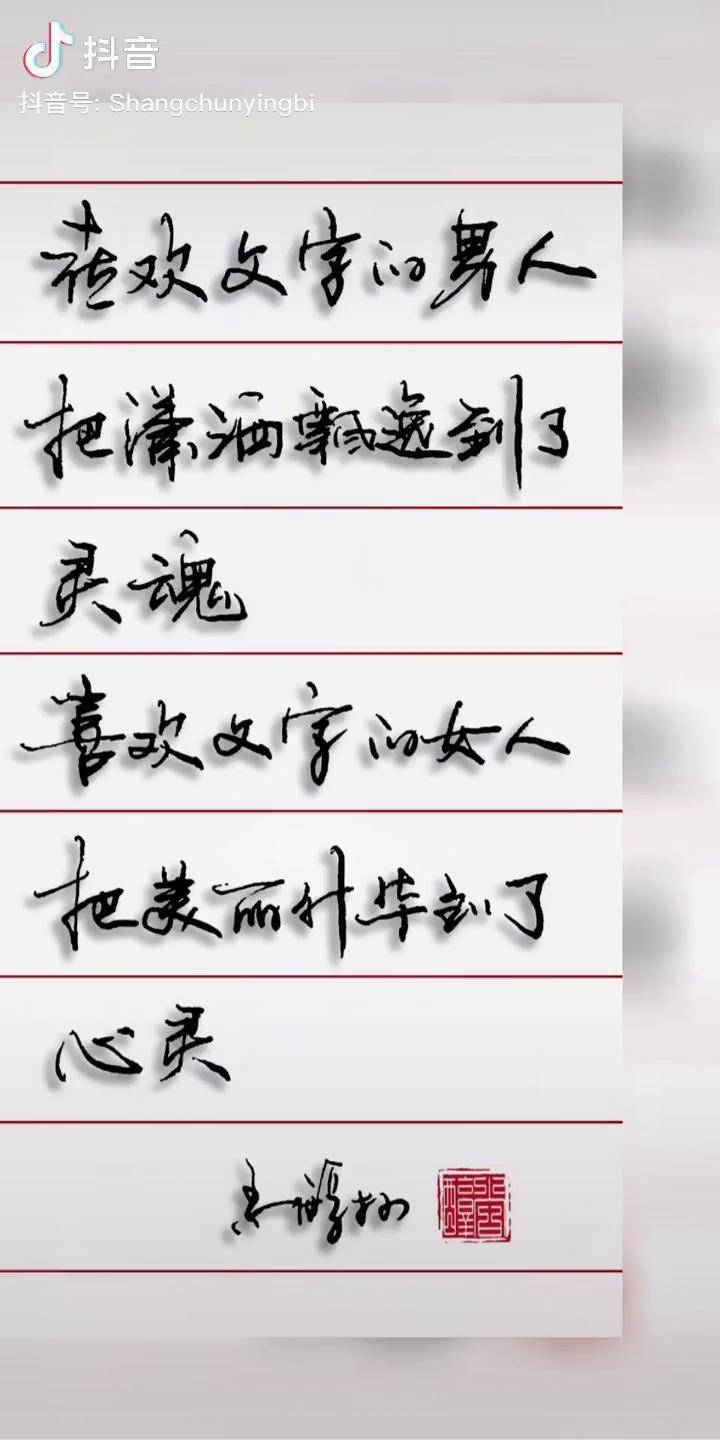 抖音
抖音号: Shangchunyingbi
喜欢文字的男人
把潇洒飘逸到了
灵魂
喜欢文字的女人
把美丽升华到了
心灵